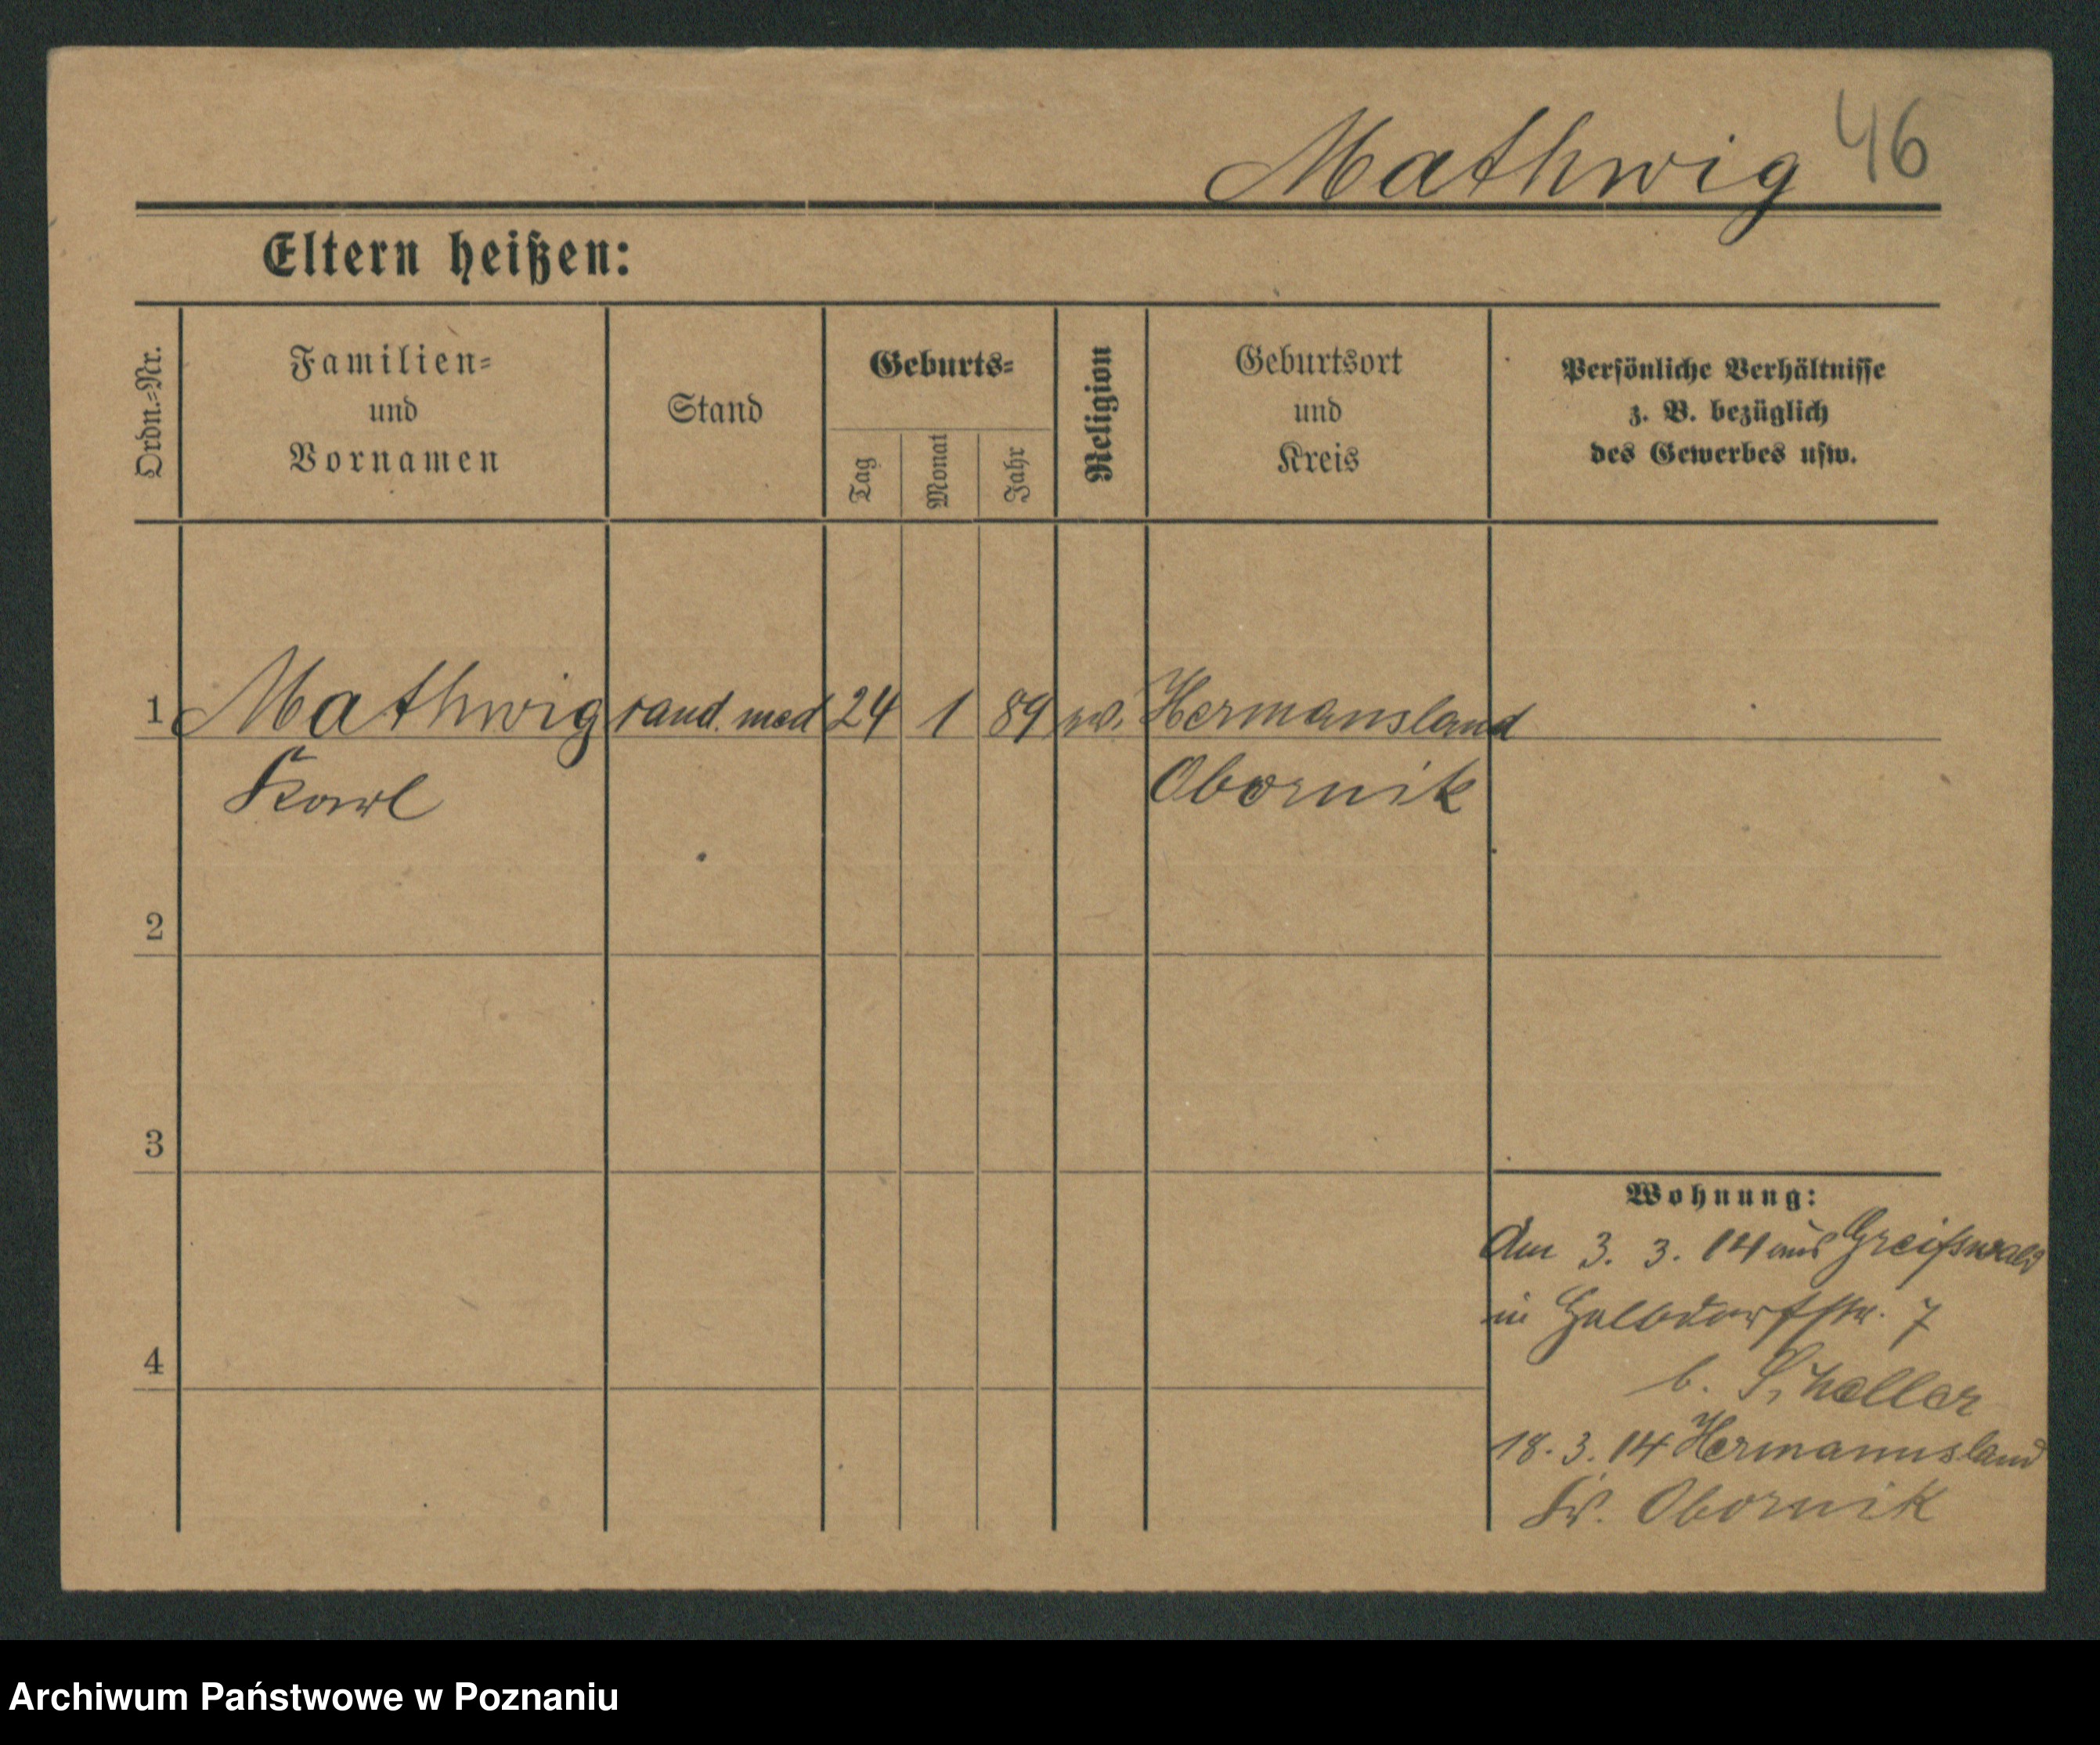 Mathwig 46
Eltern heißen:
Ordn.-Nr.
Familien-
und
Vornamen
Stand
Geburts-
Tag
Monat
Jahr
Religion
Geburtsort
und
Kreis
Persönliche Verhältnisse
z. B. bezüglich
des Gewerbes usw.
1 Mathwig cand. med 24 1 89 Hermansland
Karl Obornik
2
3
4
Wohnung:
Am 3. 3. 14 aus Greifswald
in 7
b.
18. 3. 14 Hermannsland
Kr. Obornik
Archiwum Państwowe w Poznaniu